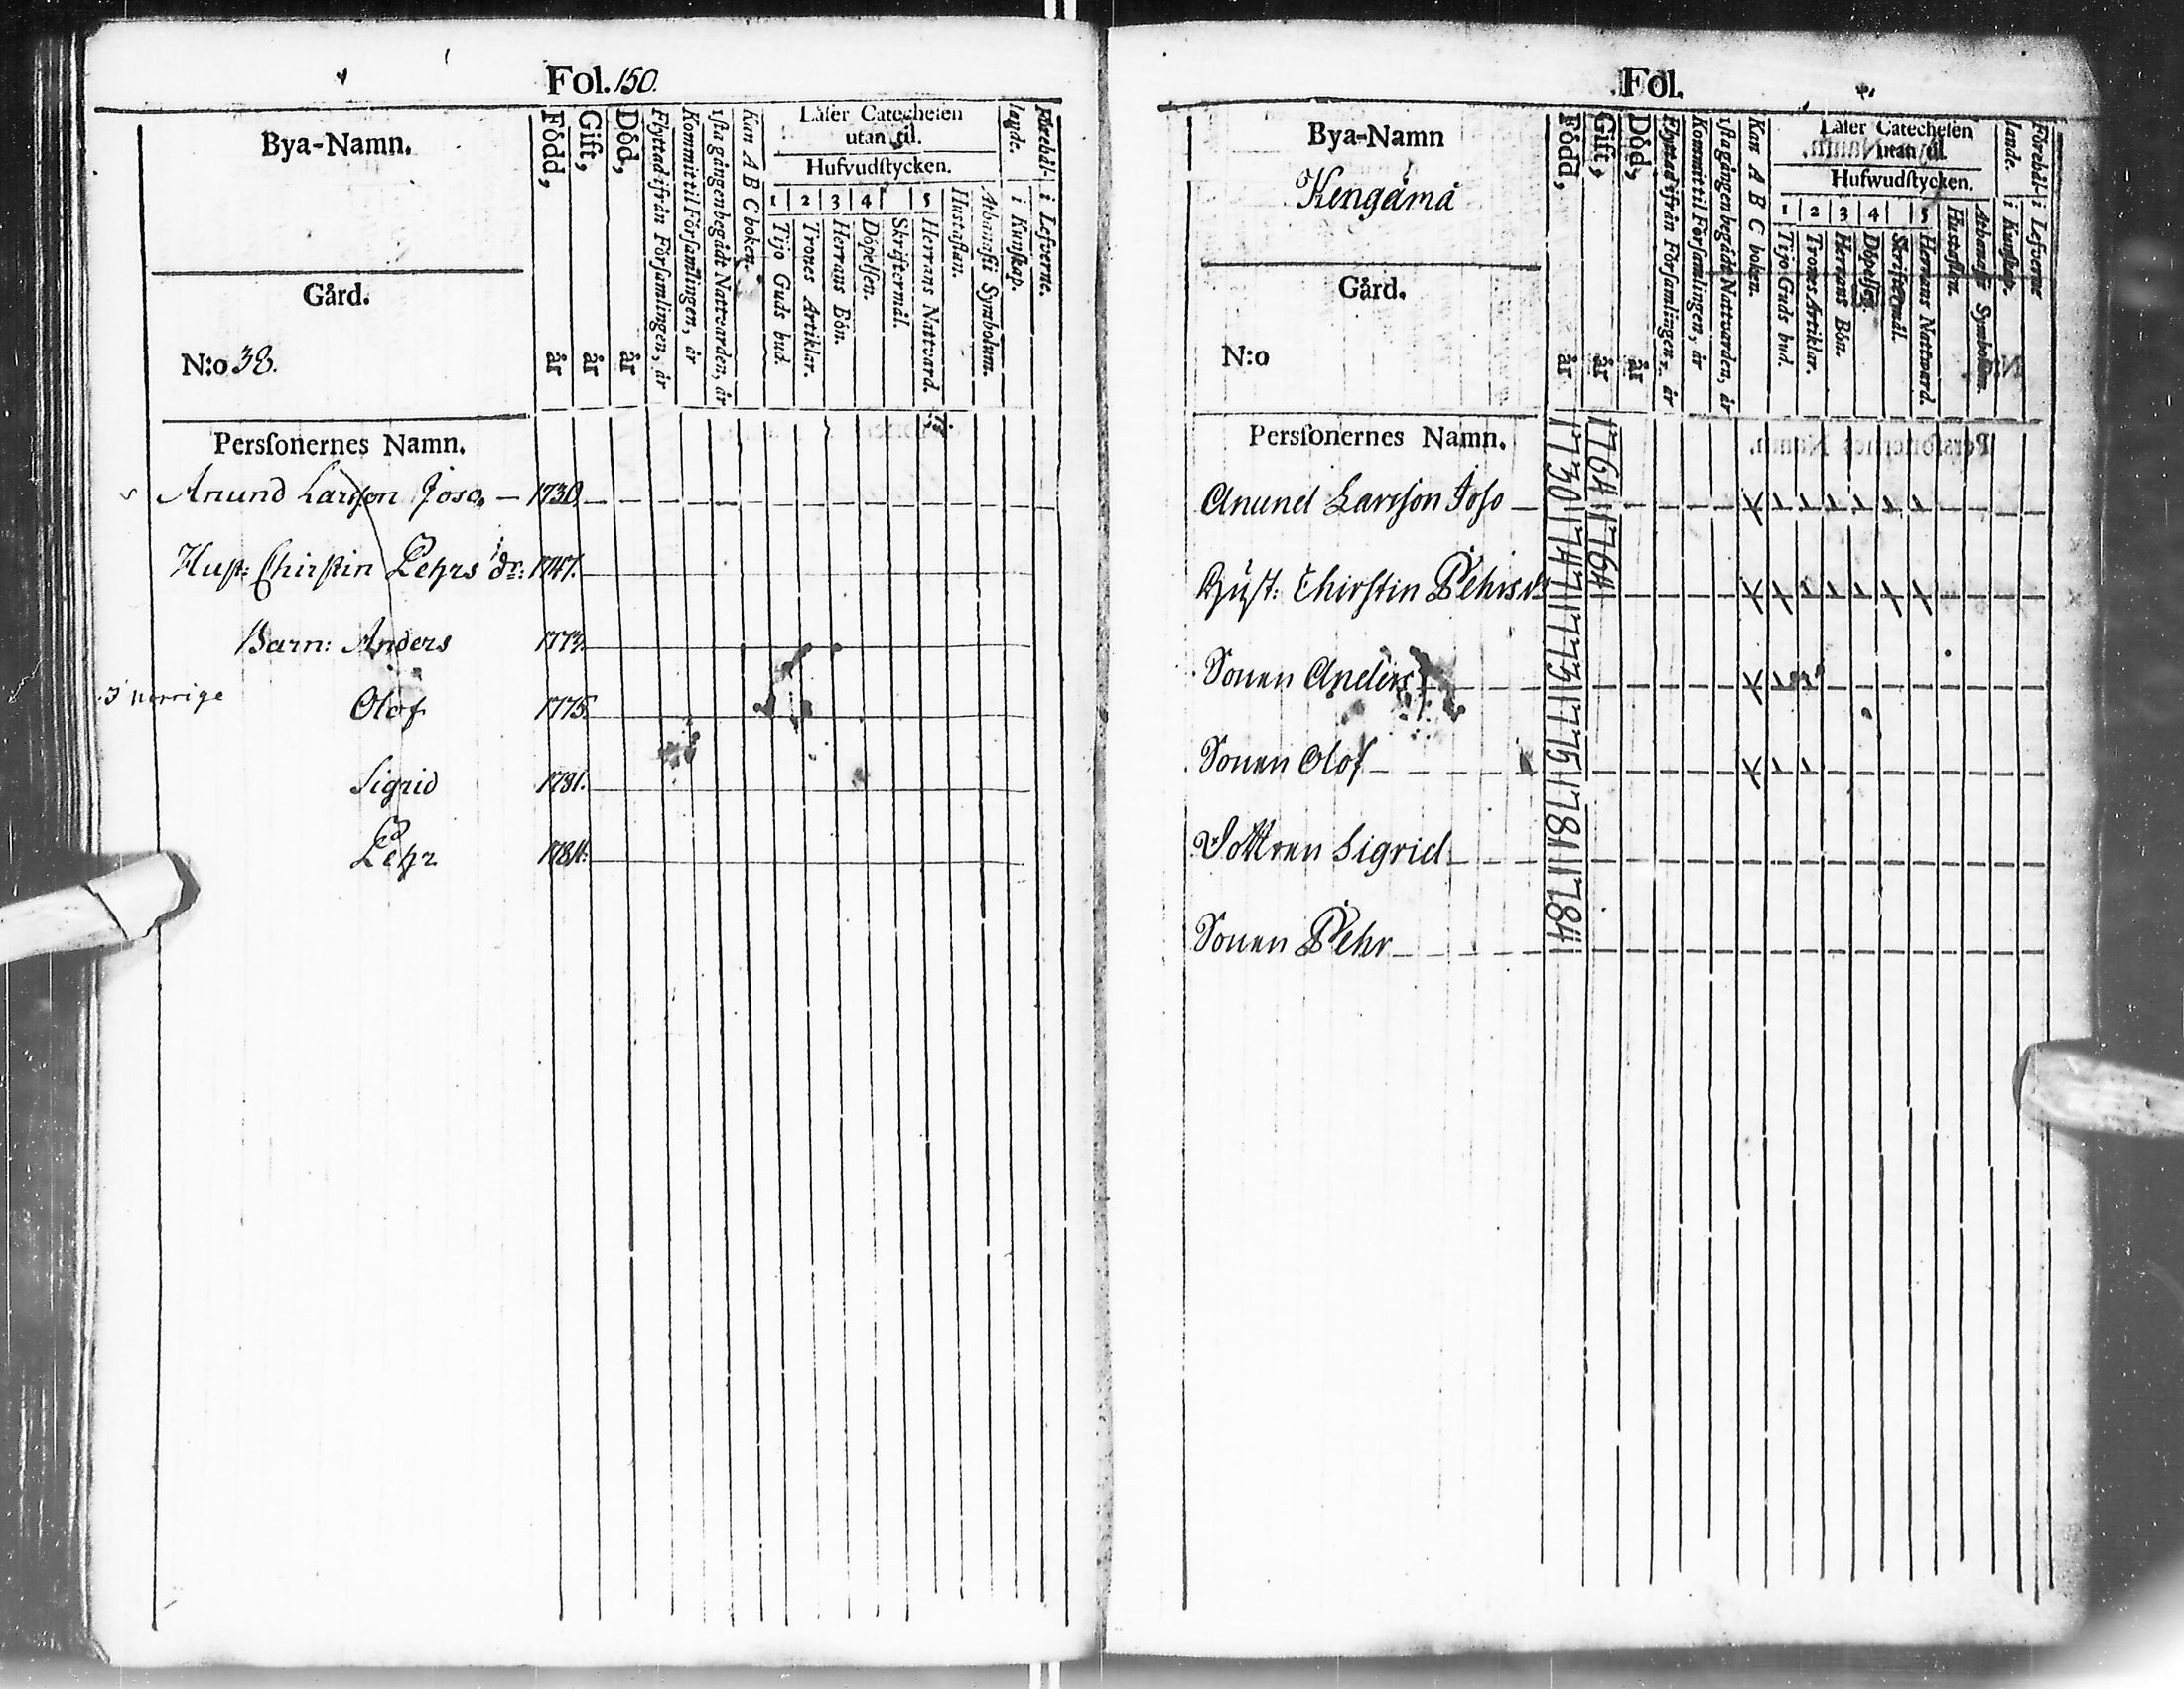 Fol. 150.
Bya-Namn.
Gård.
N:o 38.
Född, år
Gift, år
Död, år
Flyttad ifrån Församlingen, år
Kommit til Församlingen, år
1sta gången begådt Nattvarden, år
Kan A B C boken.
Läser Catechesen
utan til.
Hufvudstycken.
1 2 3 4 5
Tijo Guds bud.
Trones Artiklar.
Herrans Bön.
Döpelsen.
Skriftermål.
Herrans Nattvard.
Hustaflan.
Athanasii Symbolum.
i Kunskap.
i Lefverne.
Personernes Namn.
Anund Larsson Joso — 1730.
Hust: Chirstin Pehrs dr: 1747.
Barn: Anders 1773.
I norrige Olof 1775.
Sigrid 1781.
Pehr 1784.
Fol.
Bya-Namn
Kengämä
Gård.
N:o
Född, år
Gift, år
Död, år
Flyttad ifrån Församlingen, år
Kommit til Församlingen, år
1sta gången begådt Nattvarden, år
Kan A B C boken.
Läser Catechesen
utan til.
Hufwudstycken.
1 2 3 4 5
Tijo Guds bud.
Trones Artiklar.
Herrans Bön.
Döpelsen.
Skriftermål.
Herrans Nattward.
Hustaflan.
Athanasii Symbolum.
i Kunskap.
i Lefverne
Personernes Namn.
Anund Larsson Joso — 1730 1764
Hust: Chirstin Pehrs dr 1747 1764
Sonen Anders 1773
Sonen Olof 1775
Dottren Sigrid 1781
Sonen Pehr 1784